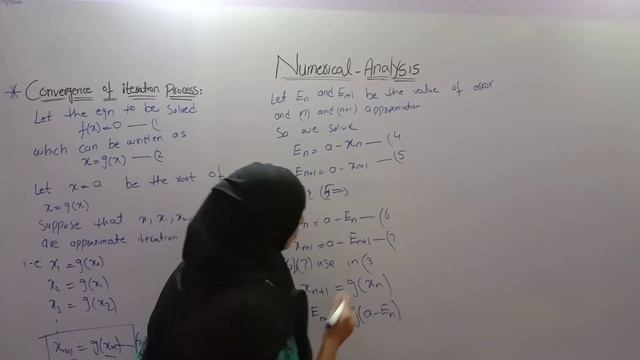 Numerical - Analysis
* Convergence of iteration Process:
Let the eqn to be solved
f(x)=0 —(1
which can be written as
x=g(x) —(2
Let x=a be the root of
x=g(x)
Suppose that x, x₁, x₂,
are approximate iteration
i-e x₁ = g(x₀)
x₂ = g(x₁)
x₃ = g(x₂)
⋮
xₙ₊₁ = g(xₙ)
Let Eₙ and Eₙ₊₁ be the value of error
and (n) and (n+1) approximation
So we solve
Eₙ = a - xₙ —(4
Eₙ₊₁ = a - xₙ₊₁ —(5
(5⇒)
= a - Eₙ —(6
xₙ₊₁ = a - Eₙ₊₁ —(7
(7) use in (3
xₙ₊₁ = g(xₙ)
g(a-Eₙ)